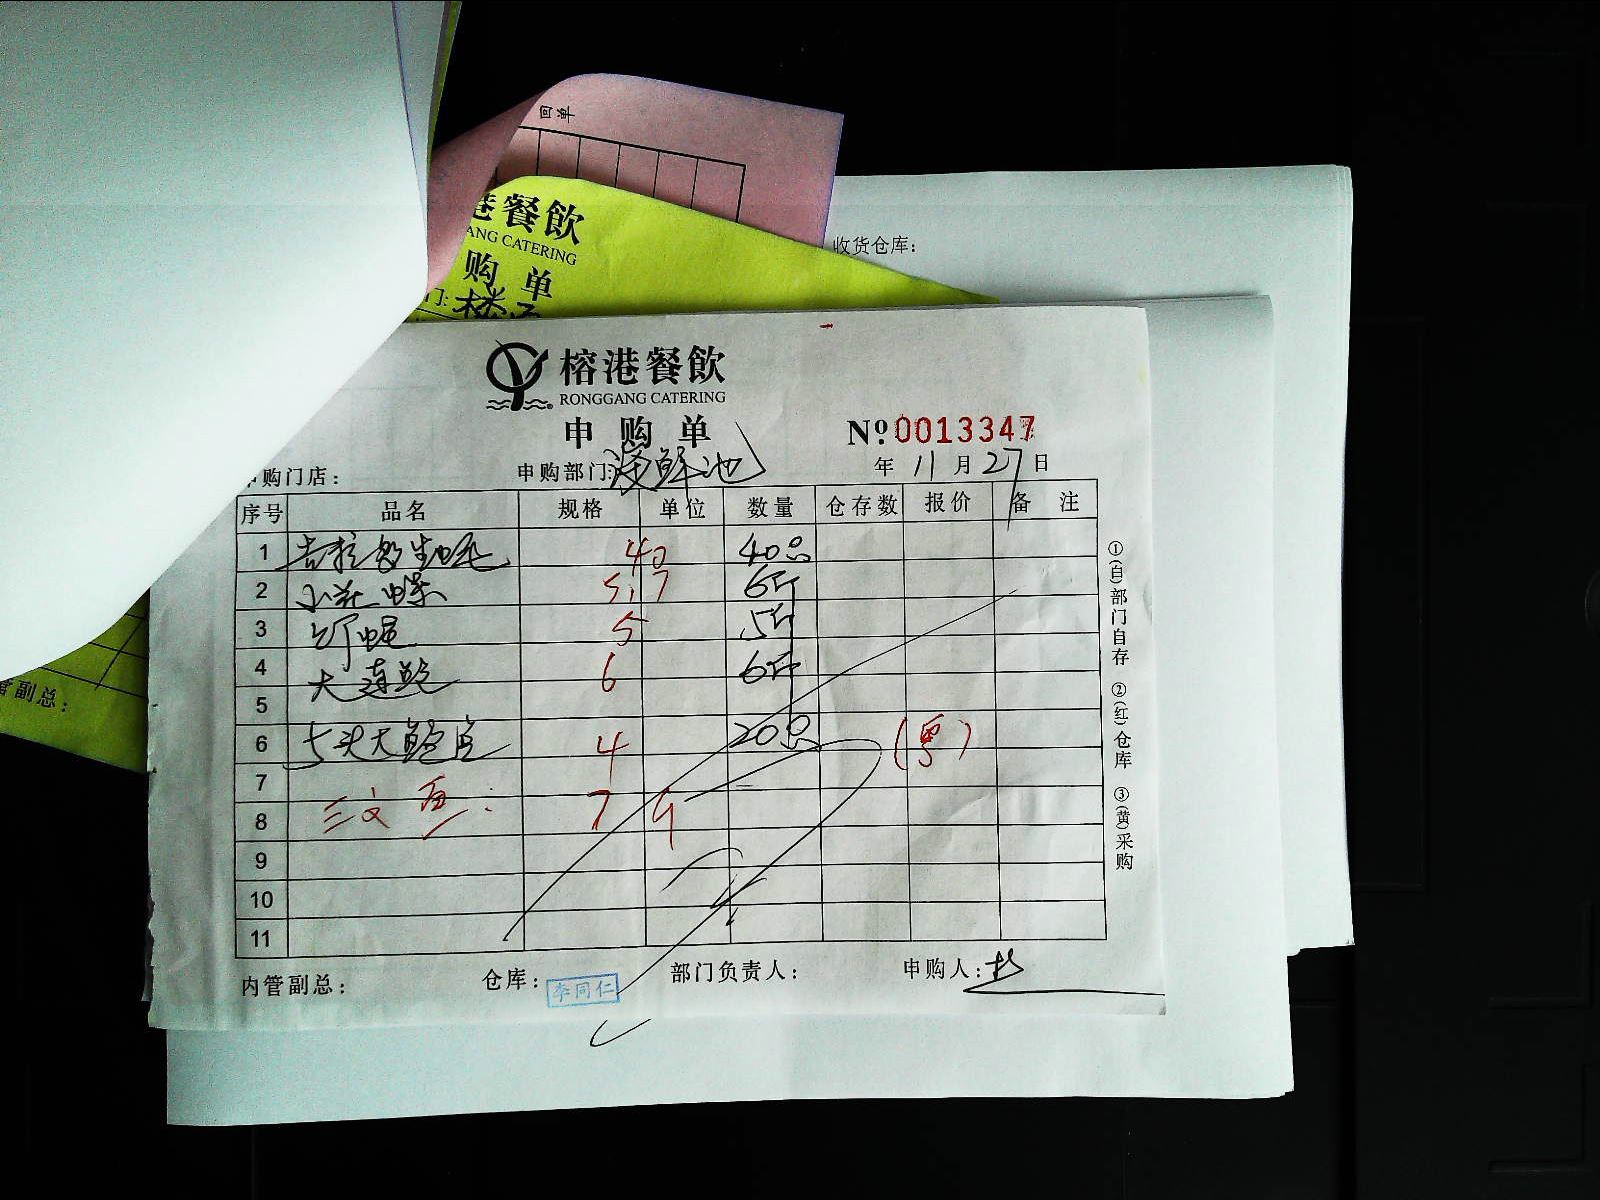 回单
港餐飲
ANG CATERING
购单
门:楼面
收货仓库:
管副总:
榕港餐飲
RONGGANG CATERING
申购单
№ 0013347
申购门店: 申购部门:海鲜池 年 11 月 27 日
序号 品名 规格 单位 数量 仓存数 报价 备注
1 吉拉多生蚝 40 40只
2 小花螺 5.7 6斤
3 5 5斤
4 大连鲍 6 6斤
5
6 5头大鲍鱼 4 20只
7
8 三文鱼: 7.9
9
10
11
①(白)部门自存 ②(红)仓库 ③(黄)采购
内管副总: 仓库: 李同仁 部门负责人: 申购人: